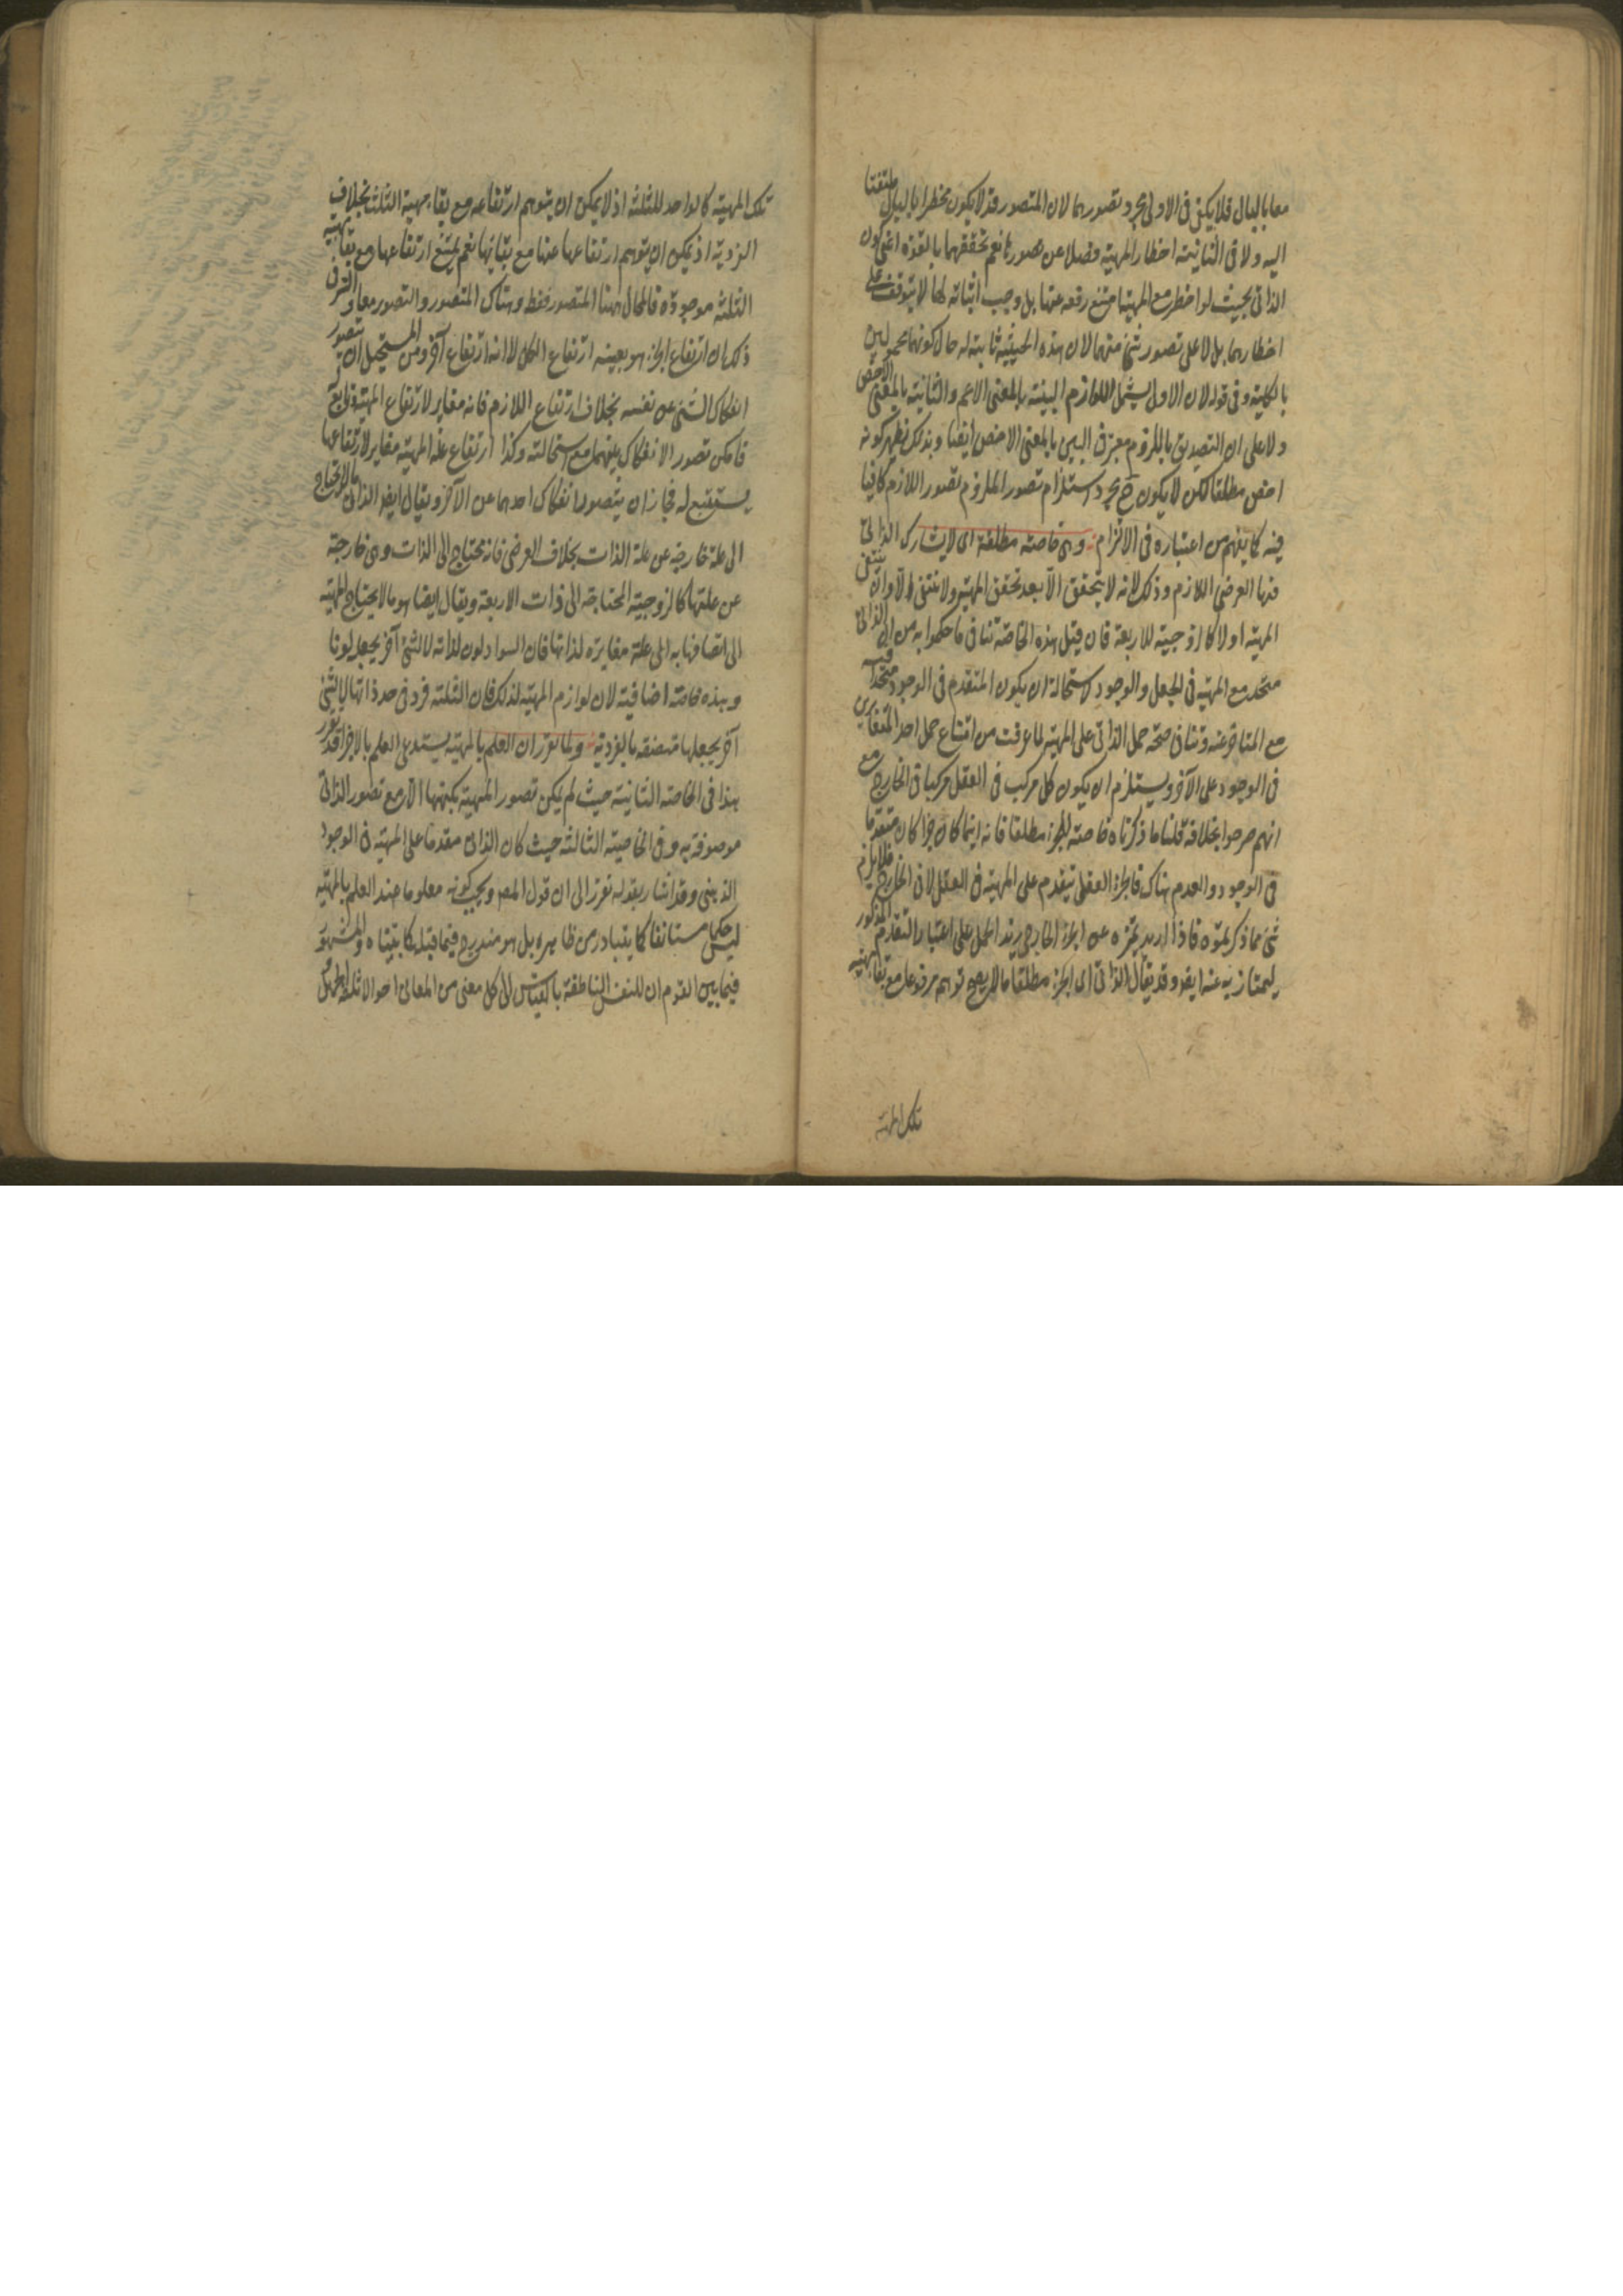 معا بالبال فلا يكفى فى الاولى مجرد تصورهما لان المتصور قد لا يكون مخطرا بالبال ملتفتا
اليه ولا فى الثانية اخطار المهية فضلا عن تصورها نعم تحققهما بالقوة اعنى كون
الذاتى بحيث لو اخطر مع المهية امتنع رفعه عنها بل وجب اثباته لها لا يتوقف على
اخطارهما بل لا على تصور شئ منهما لان هذه الحيثية ثابتة له حال كونهما مجهولين
بالكلية وفى قوله لان الاول يشمل اللوازم البينة بالمعنى الاعم والثانية بالمعنى الاخص
دلا على ان التصديق باللزوم معتبر فى البين بالمعنى الاخص ايضا وبذلك يظهر كونه
اخص مطلقا لكن لا يكون ح مجرد استلزام تصور الملزوم تصور اللازم كافيا
فيه كما يفهم من اعتباره فى الالتزام وهى خاصة مطلقة اى لا يشارك الذاتى
فيها العرضى اللازم وذلك لانه لا يتحقق الا بعد تحقق المهية ولا ينتفى الا وان ينتفى
المهية اولا كالزوجية للاربعة فان قيل هذه الخاصة تنافى ما حكموا به من ان الذاتى
متحد مع المهية فى الجعل والوجود لاستحالة ان يكون المتقدم فى الوجود متحدا فيه
مع المتاخر عنه وتنافى صحة حمل الذاتى على المهية لما عرفت من امتناع حمل احد المتغايرين
فى الوجود على الآخر ويستلزم ان يكون كل مركب فى العقل مركبا فى الخارج مع
انهم صرحوا بخلافه قلنا ما ذكرناه خاصة للجزء مطلقا فانه اينما كان جزا كان متقدما
فى الوجود والعدم هناك فالجزء العقلى يتقدم على المهية فى العقل لا فى الخارج فلا يلزم
شئ مما ذكرتموه فاذا اريد تميزه عن الجزء الخارجى زيد الحمل على اعتبار التقدم المذكور
ليمتاز به عنه ايضا وقد يقال الذاتى اى الجزء مطلقا ما لا يصح توهم مرفوعا مع بقاء المهية
تلك المهية
تلك المهية كالواحد للثلثة اذ لا يمكن ان يتوهم ارتفاعه مع بقاء مهية الثلثة بخلاف
الفردية اذ يمكن ان يتوهم ارتفاعها عنها مع بقائها نعم يمتنع ارتفاعها مع بقاء مهية
الثلثة موجودة فالمحال ههنا المتصور فقط وهناك المتصور والتصور معا والسر فى
ذلك ان ارتفاع الجزء هو بعينه ارتفاع الكل لا انه ارتفاع آخر ومن المستحيل ان يتصور
انفكاك الشئ عن نفسه بخلاف ارتفاع اللازم فانه مغاير لارتفاع المهية تابع له
فامكن تصور الانفكاك بينهما مع استحالته وكذا ارتفاع علة المهية مغاير لارتفاعها
يستتبع له فجاز ان يتصور انفكاك احدهما عن الآخر ويقال ايضا الذاتى ما لا يحتاج
الى علة خارجة عن علة الذات بخلاف العرضى فانه محتاج الى الذات وهى خارجة
عن علتها كالزوجية المحتاجة الى ذات الاربعة ويقال ايضا هو ما لا يحتاج المهية
الى اتصافها به الى علة مغايرة لذاتها فان السواد لون لذاته لا لشئ آخر يجعله لونا
وهذه خاصة اضافية لان لوازم المهية كذلك فان الثلثة فرد فى حد ذاتها لا لشئ
آخر يجعلها متصفة بالفردية ولما تقرر ان العلم بالمهية يستدعى العلم بالاجزا قد تقرر
هذا فى الخاصة الثانية حيث لم يكن تصور المهية بكنهها الا مع تصور الذاتى
موصوفة به وفى الخاصية الثالثة حيث كان الذاتى مقدما على المهية فى الوجود
الذهنى وقد اشار بقوله تقرر الى ان قول المصـ ويجب كونه معلوما عند العلم بالمهية
ليس حكما مستانفا كما يتبادر من ظاهره بل هو مندرج فيما قبله كما بيناه والمشهور
فيما بين القوم ان للنفس الناطقة بالقياس الى كل معنى من المعانى احوالا ثلثة